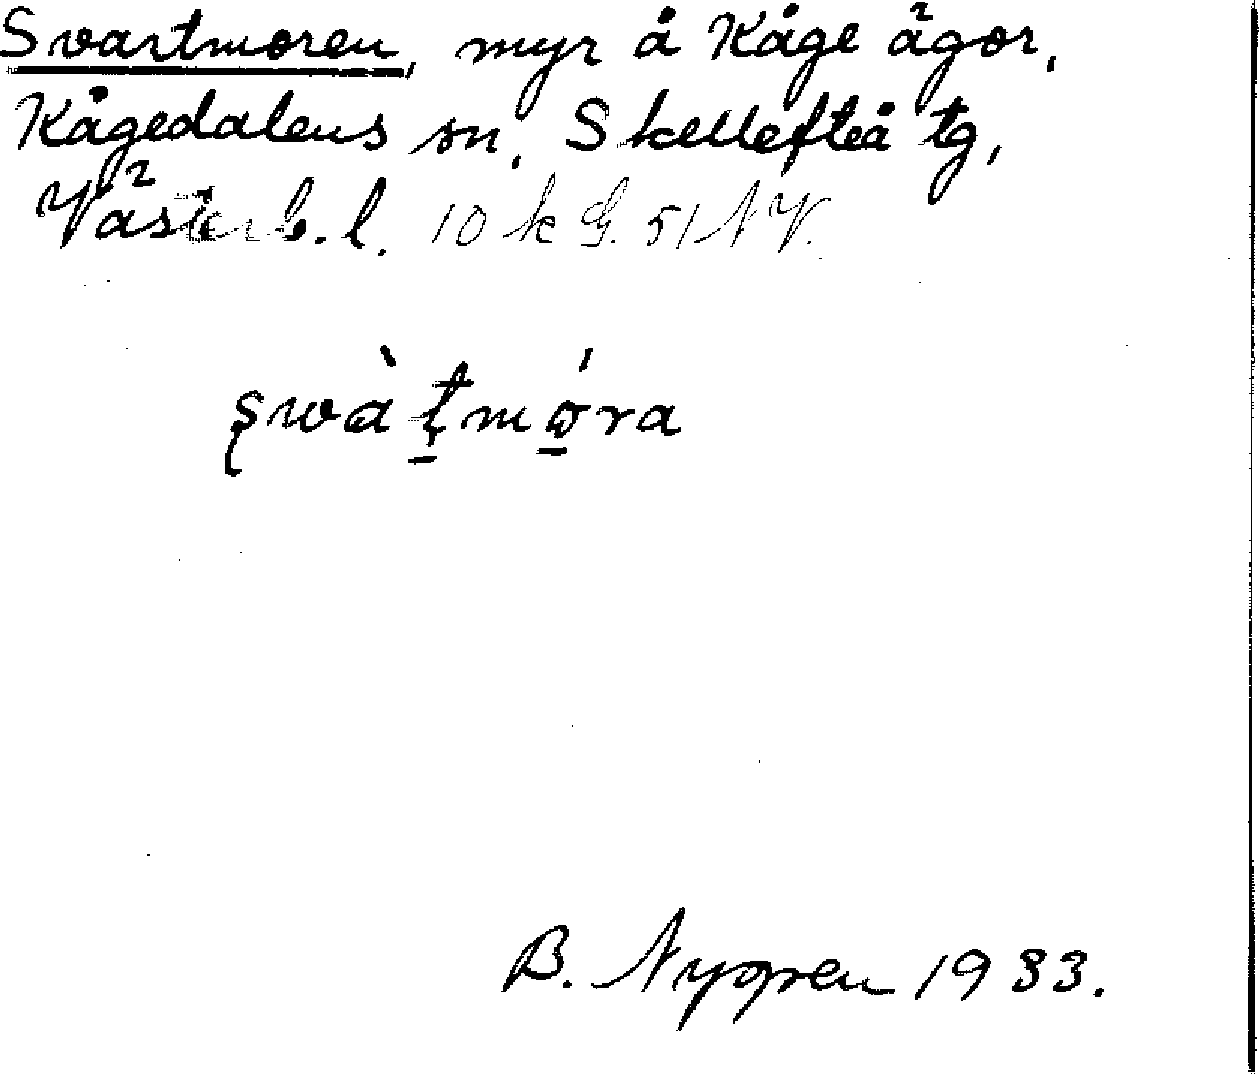 Svartmoren, myr å Kåge ägor,
Kågedalens sn, Skellefteå tg,
Västerb. l. 10 k G. 51 NV.
swàtmóra
B. Nygren 1933.